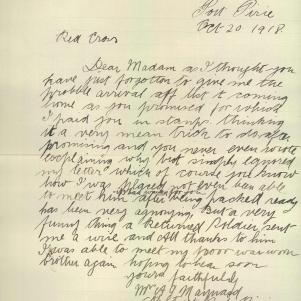 Port Pirie
Oct 20 1918.
Red Cross
Dear Madam as I thought you
have just forgotten to give me the
probble arrival off but it coming
home as you promised for which
I paid you in stamps. thinking
it a very mean trick to do after
promising and you never even wrote
explaining why but simply egnored
my letter which of course you know
how I was placed not even been able
to meet him after being packed ready
has been very agnoying, But a very
funny thing a Returned Soldier sent
me a wire and All thanks to him
I was able to meet my poor
brother again hoping to hear soon
yours faithfully
Mrs A J